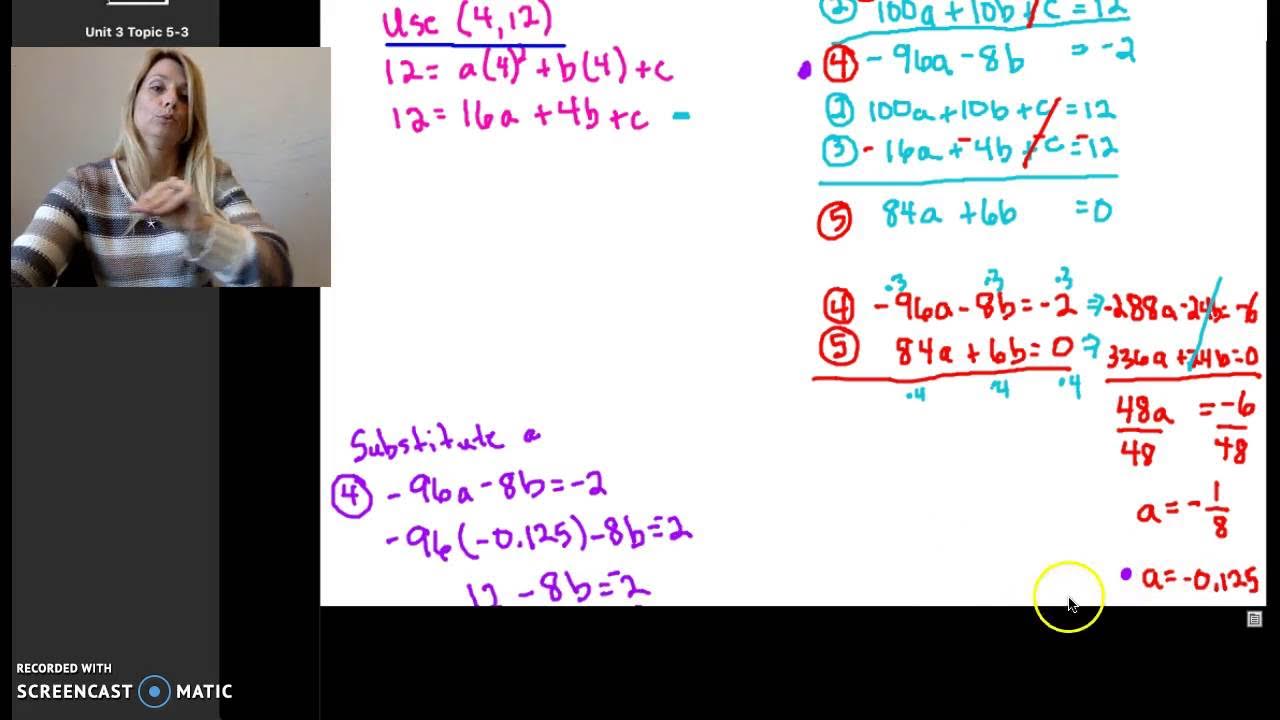 Unit 3 Topic 5-3
Use (4,12)
12 = a(4)² + b(4) + c
12 = 16a + 4b + c -
② 100a + 10b + c = 12
④ - 96a - 8b = -2
② 100a + 10b + c = 12
③ - 16a + - 4b + - c = - 12
⑤ 84a + 6b = 0
·3 ·3 ·3
④ - 96a - 8b = -2 ⇒ -288a - 24b = -6
⑤ 84a + 6b = 0 ⇒ 336a + 24b = 0
·4 ·4 ·4
48a = -6
48 48
a = - 1/8
• a = -0.125
Substitute a
④ - 96a - 8b = -2
- 96(-0.125) - 8b = -2
12 - 8b = -2
RECORDED WITH
SCREENCAST MATIC